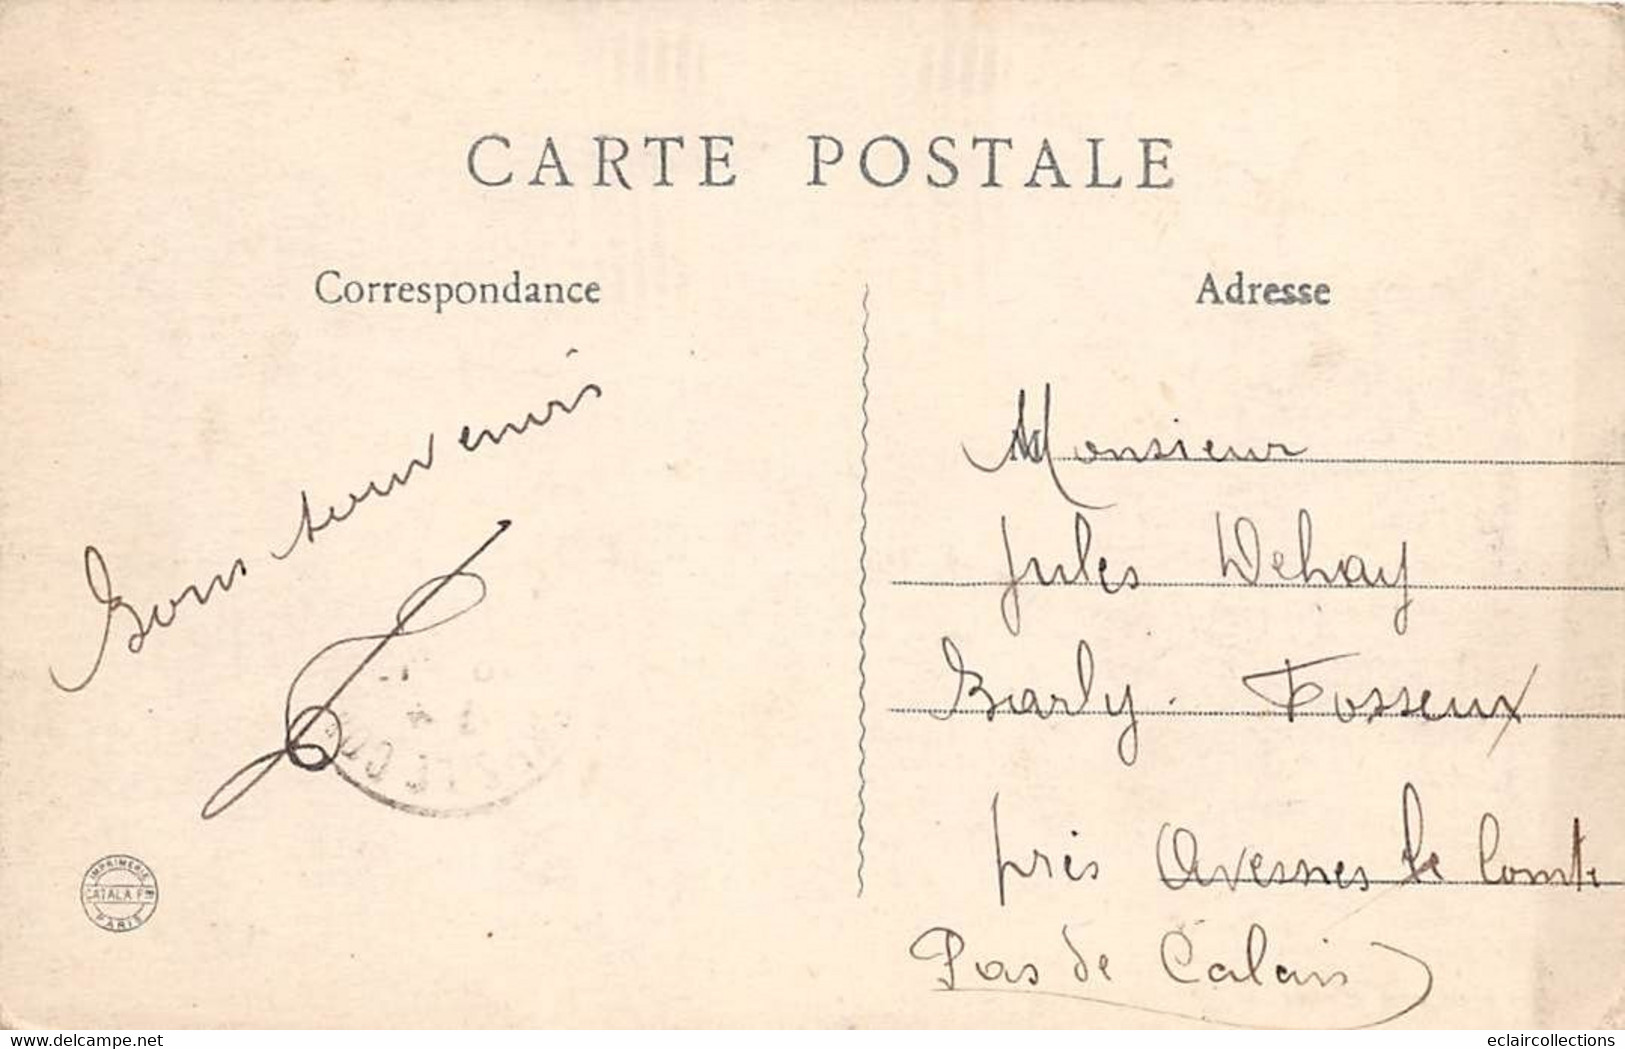 CARTE POSTALE
Correspondance
Adresse
Bons souvenirs
Monsieur
Jules Dehay
Barly . Fosseux
près Avesnes le Comte
Pas de Calais
IMPRIMERIE
CATALA FRES
PARIS
www.delcampe.net
eclaircollections